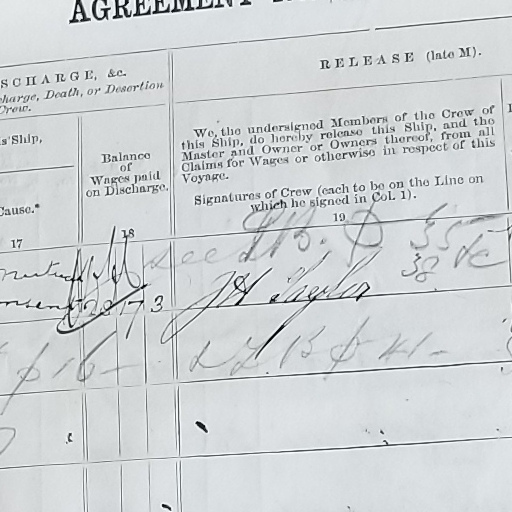 AGREEMENT
SCHARGE, &c.
charge, Death, or Desertion
Crew.
RELEASE (late M).
is Ship,
Balance
of
Wages paid
on Discharge.
We, the undersigned Members of the Crew of
this Ship, do hereby release this Ship, and the
Master and Owner or Owners thereof, from all
Claims for Wages or otherwise in respect of this
Voyage.
Signatures of Crew (each to be on the Line on
which he signed in Col. 1).
Cause.*
17
18
19
B. $ 35
38
17 3
$ 16-
B $ 41-